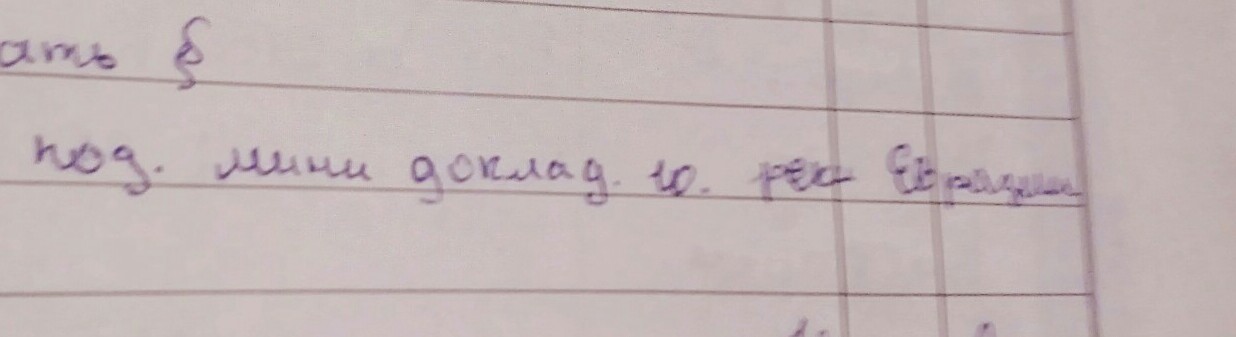 ать §
под. мини доклад. ю. рек Евразии